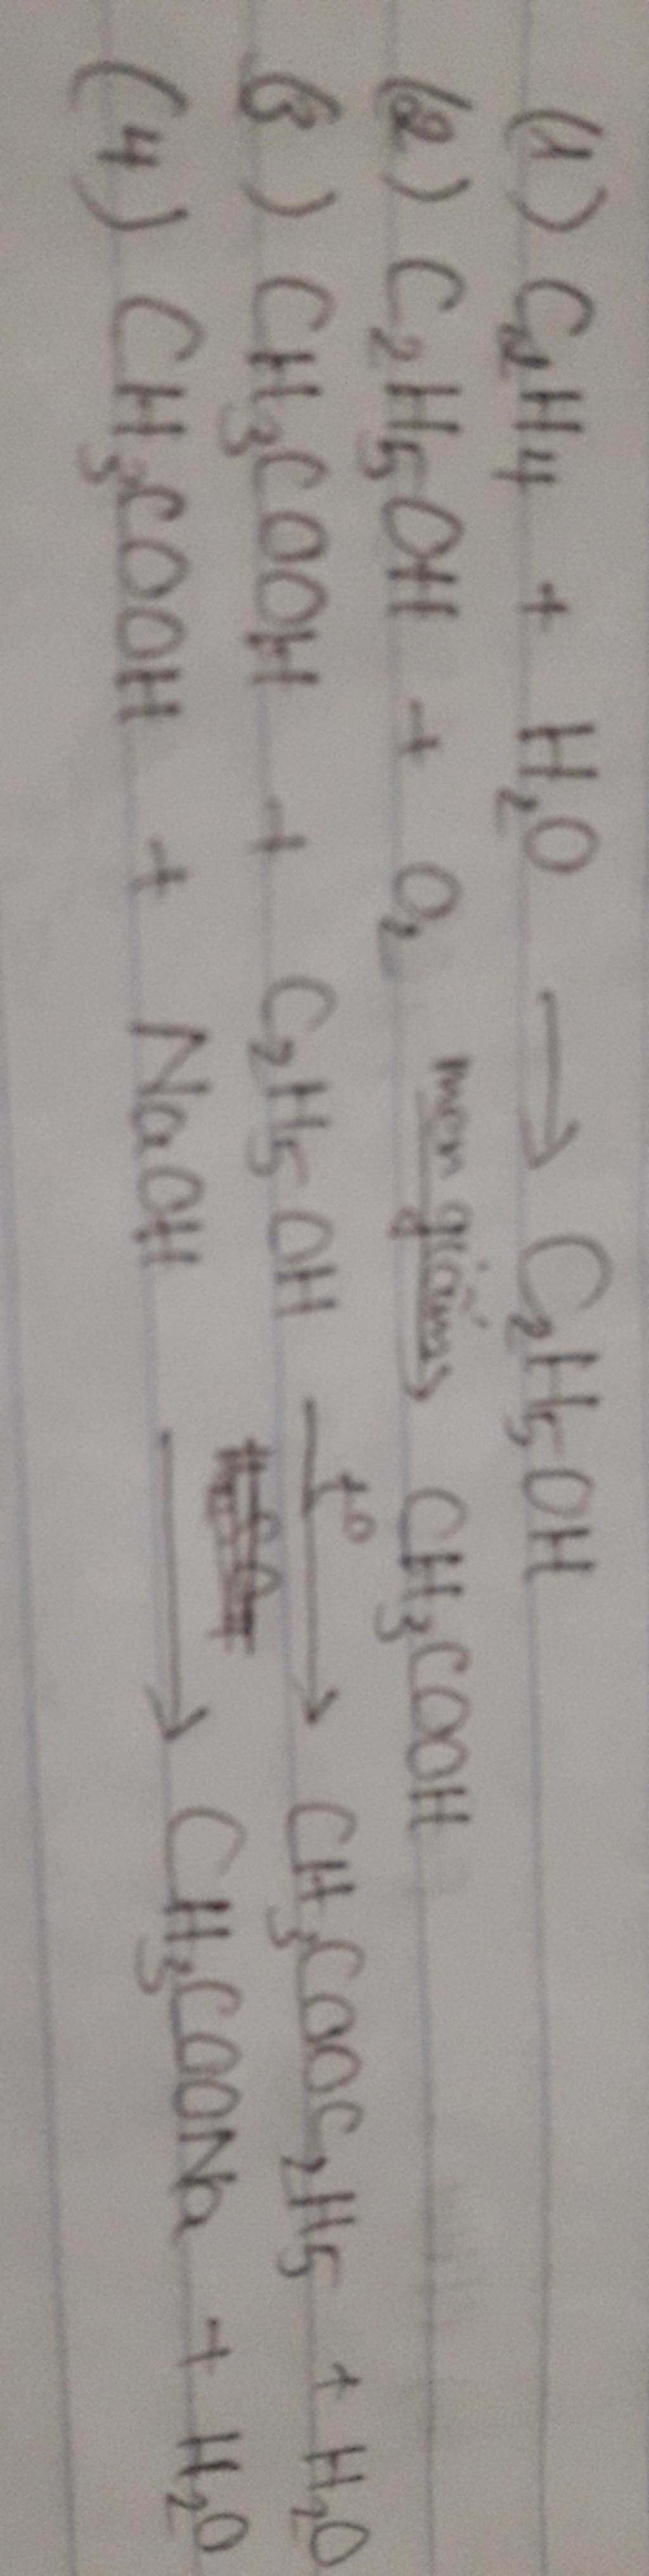 (1) C₂H₄ + H₂O → C₂H₅OH
(2) C₂H₅OH + O₂ men giấm→ CH₃COOH
(3) CH₃COOH + C₂H₅OH t⁰→ CH₃COOC₂H₅ + H₂O
(4) CH₃COOH + NaOH → CH₃COONa + H₂O